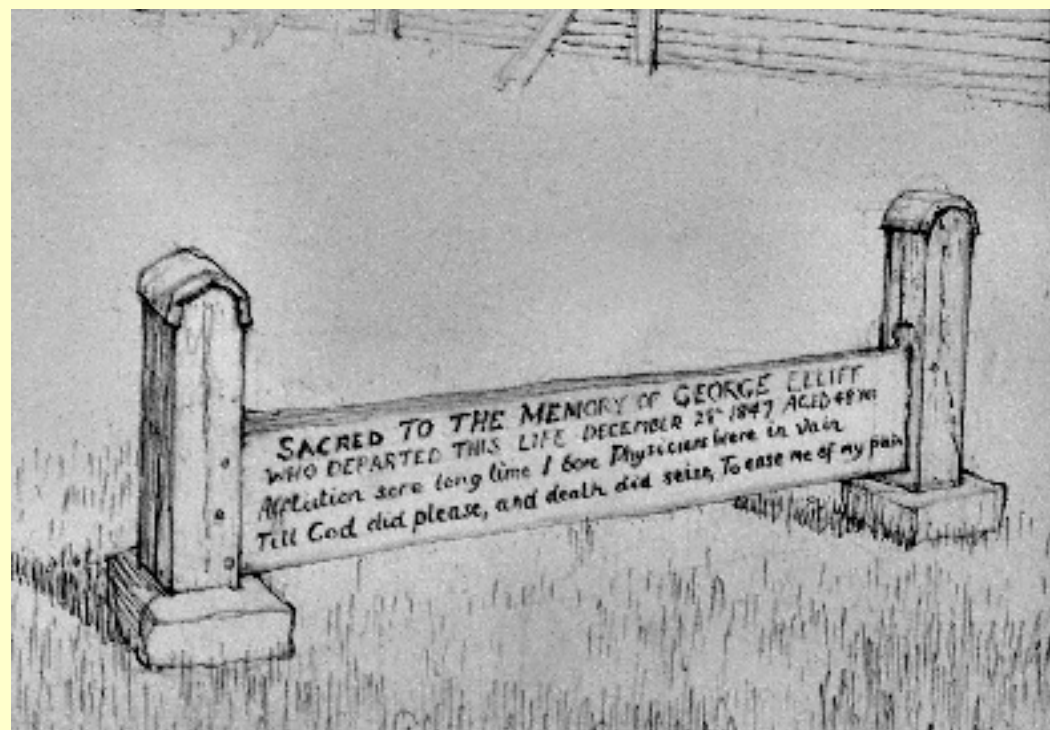 SACRED TO THE MEMORY OF GEORGE ELLIFF
WHO DEPARTED THIS LIFE DECEMBER 28th 1847 AGED 48
Affliction sore long time I bore Physicians were in vain
Till God did please, and death did seize, To ease me of my pain